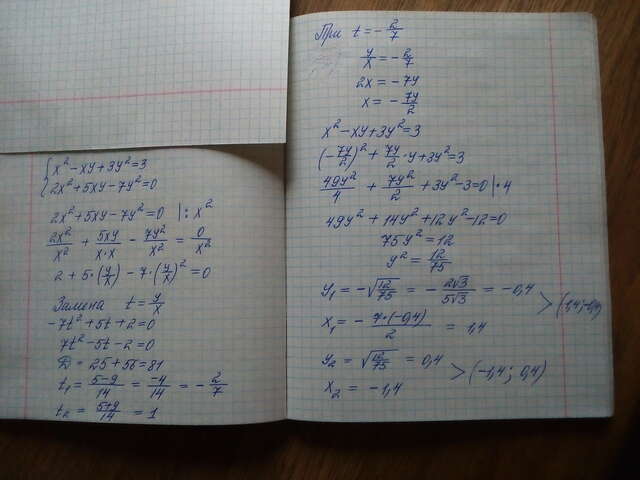 { x² - xy + 3y² = 3
2x² + 5xy - 7y² = 0
2x² + 5xy - 7y² = 0 | : x²
2x²/x² + 5xy/x·x - 7y²/x² = 0/x²
2 + 5·(y/x) - 7·(y/x)² = 0
Замена t = y/x
-7t² + 5t + 2 = 0
7t² - 5t - 2 = 0
D = 25 + 56 = 81
t₁ = 5-9/14 = -4/14 = -2/7
t₂ = 5+9/14 = 1
При t = -2/7
y/x = -2/7
2x = -7y
x = -7y/2
x² - xy + 3y² = 3
(-7y/2)² + 7y/2 · y + 3y² = 3
49y²/4 + 7y²/2 + 3y² - 3 = 0 | · 4
49y² + 14y² + 12y² - 12 = 0
75y² = 12
y² = 12/75
y₁ = -√12/75 = -2√3/5√3 = -0,4
> (1,4; -0,4)
x₁ = -7·(-0,4)/2 = 1,4
y₂ = √12/75 = 0,4
> (-1,4; 0,4)
x₂ = -1,4